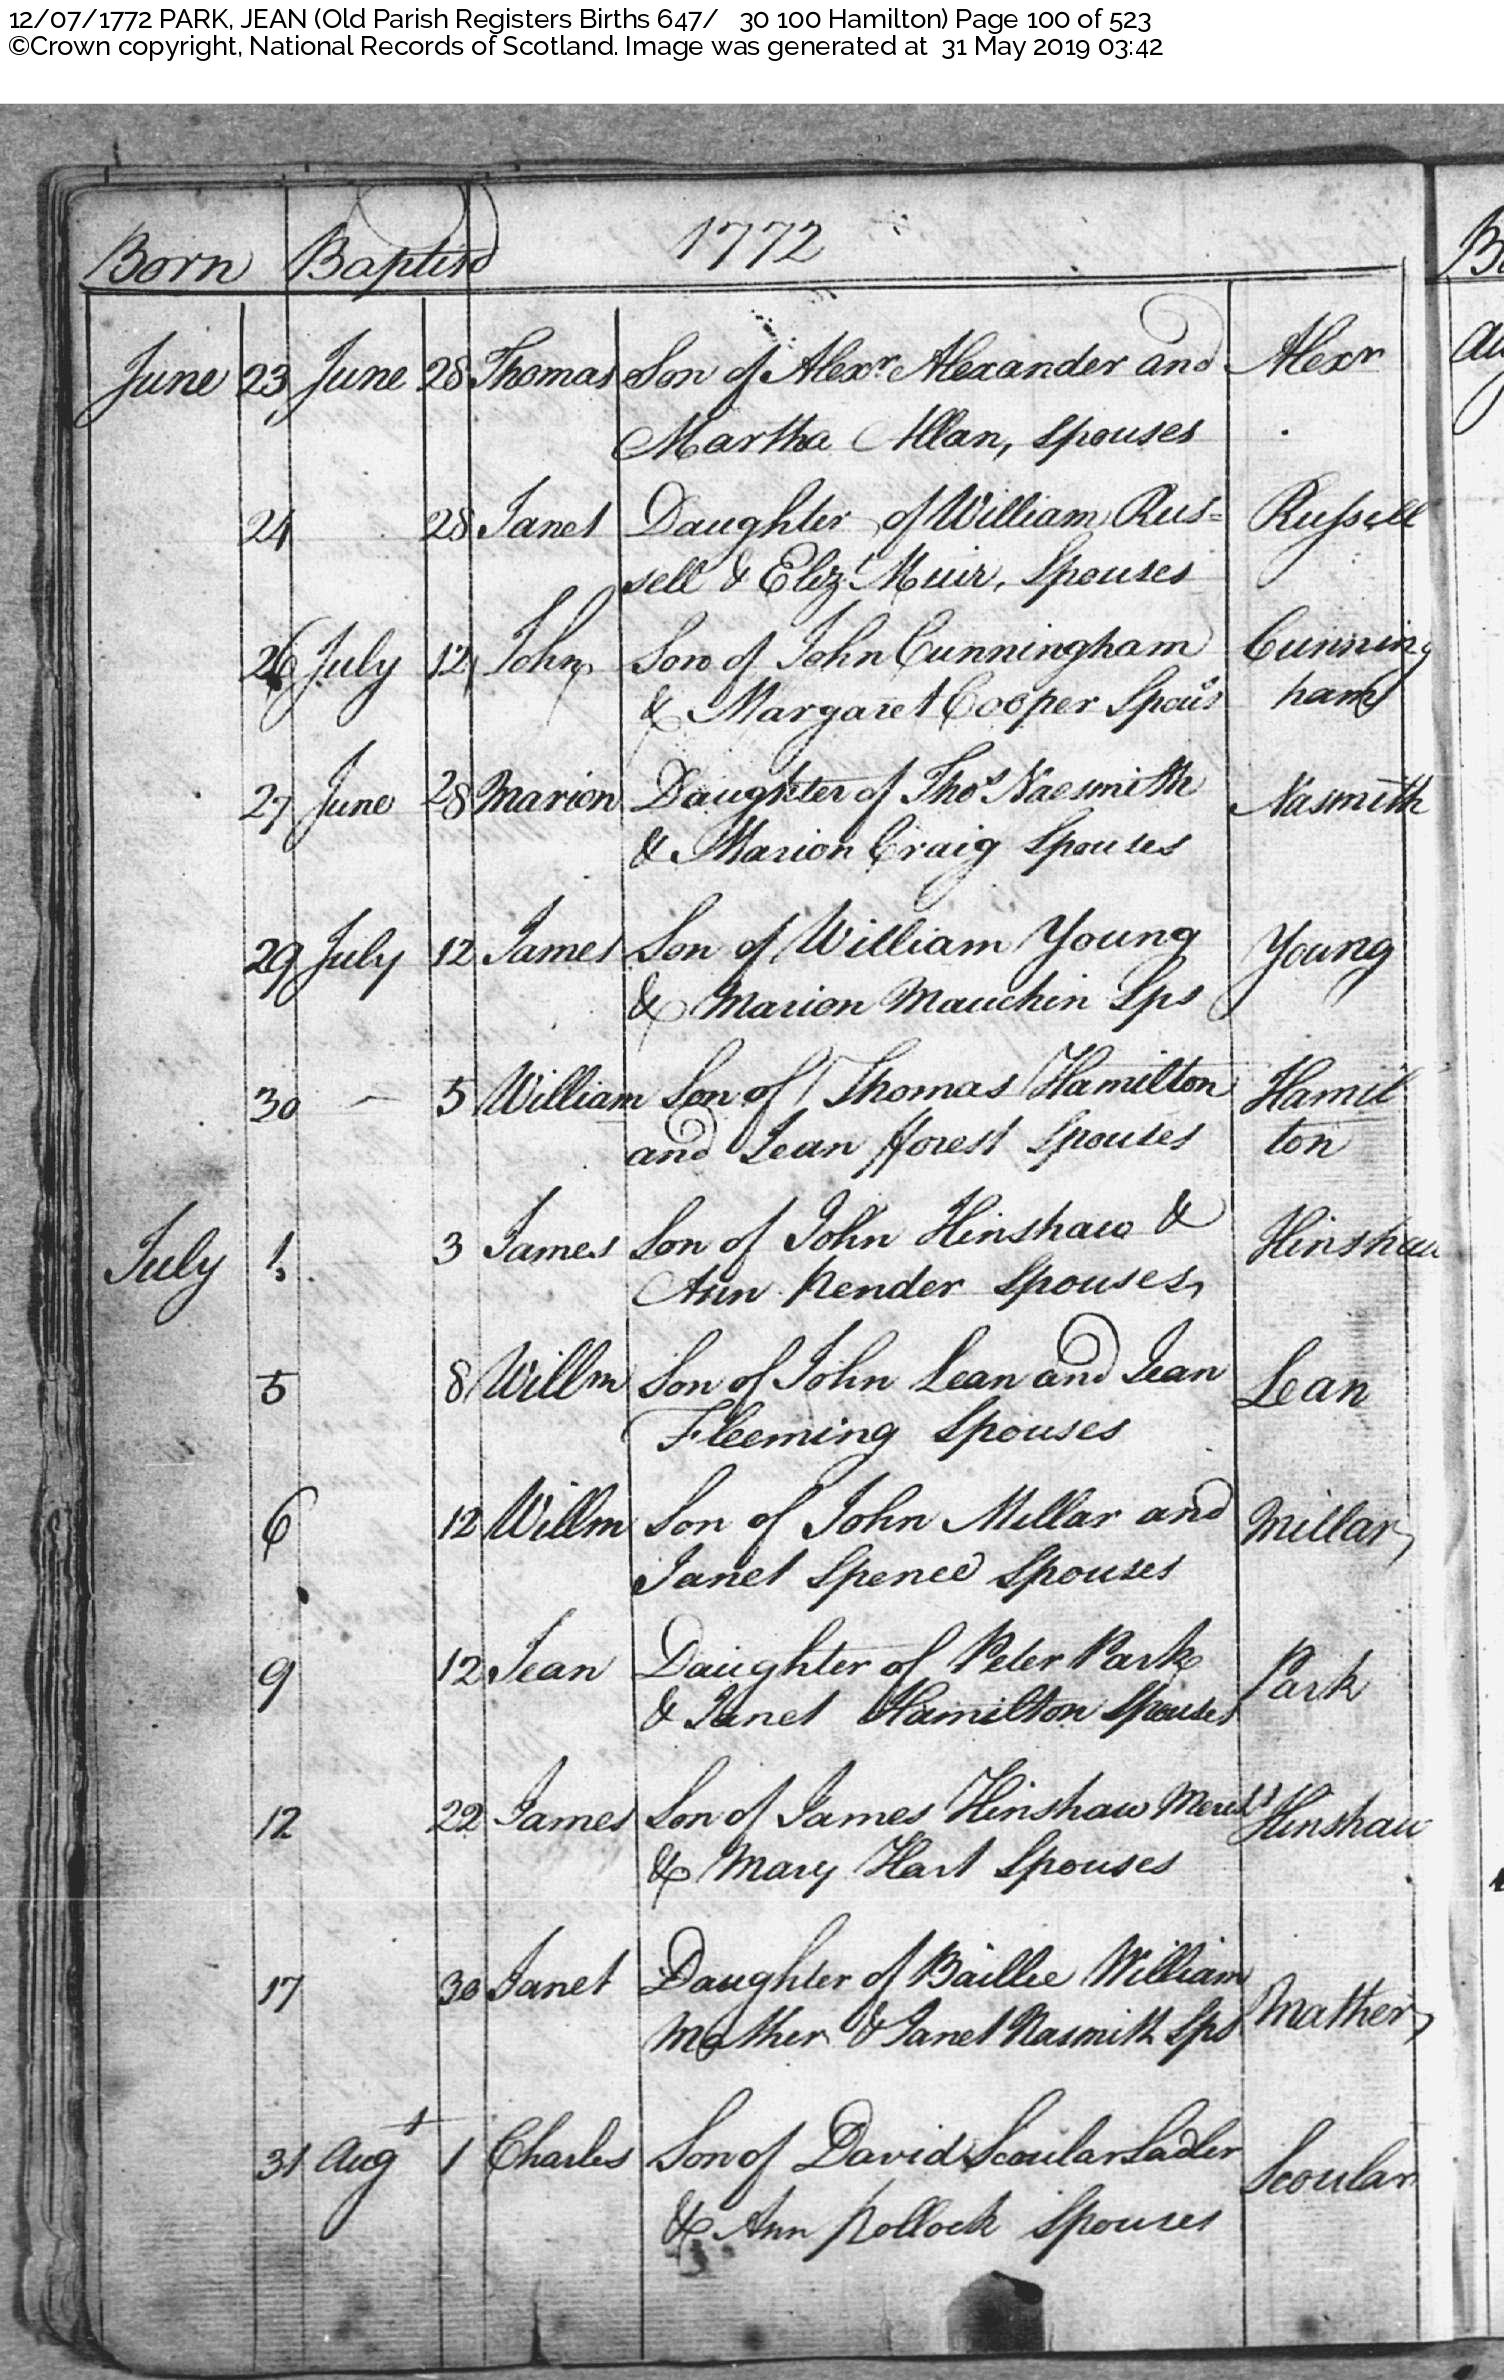 12/07/1772 PARK, JEAN (Old Parish Registers Births 647/ 30 100 Hamilton) Page 100 of 523
©Crown copyright, National Records of Scotland. Image was generated at 31 May 2019 03:42
1772
Born Baptisd
June 23 June 28 Thomas Son of Alexr. Alexander and Alexr
Martha Allan, Spouses
24 28 Janet Daughter of William Rus= Russell
sell & Elizt. Muir, Spouses
26 July 12 John Son of John Cunningham Cunning
& Margaret Cooper Spous ham
27 June 28 Marion Daughter of Thos Naesmith Nasmith
& Marion Craig Spouses
29 July 12 James Son of William Young Young
& Marion Mauchin Sps
30 – 5 William Son of Thomas Hamilton Hamil
and Jean fforest Spouses ton
July 1 3 James Son of John Hinshaw & Hinshaw
Ann Render Spouses,
5 8 Willm Son of John Lean and Jean Lean
Fleeming Spouses
6 12 Willm Son of John Millar and Millar
Janet Spence Spouses
9 12 Jean Daughter of Peter Park Park
& Janet Hamilton Spouses
12 22 James Son of James Hinshaw Hinshaw
& Mary Hart Spouses
17 30 Janet Daughter of Baillie William
Mather & Janet Nasmith Sps Mather
31 Augt 1 Charles Son of David Scoular Sadler Scoular
& Ann Pollock Spouses